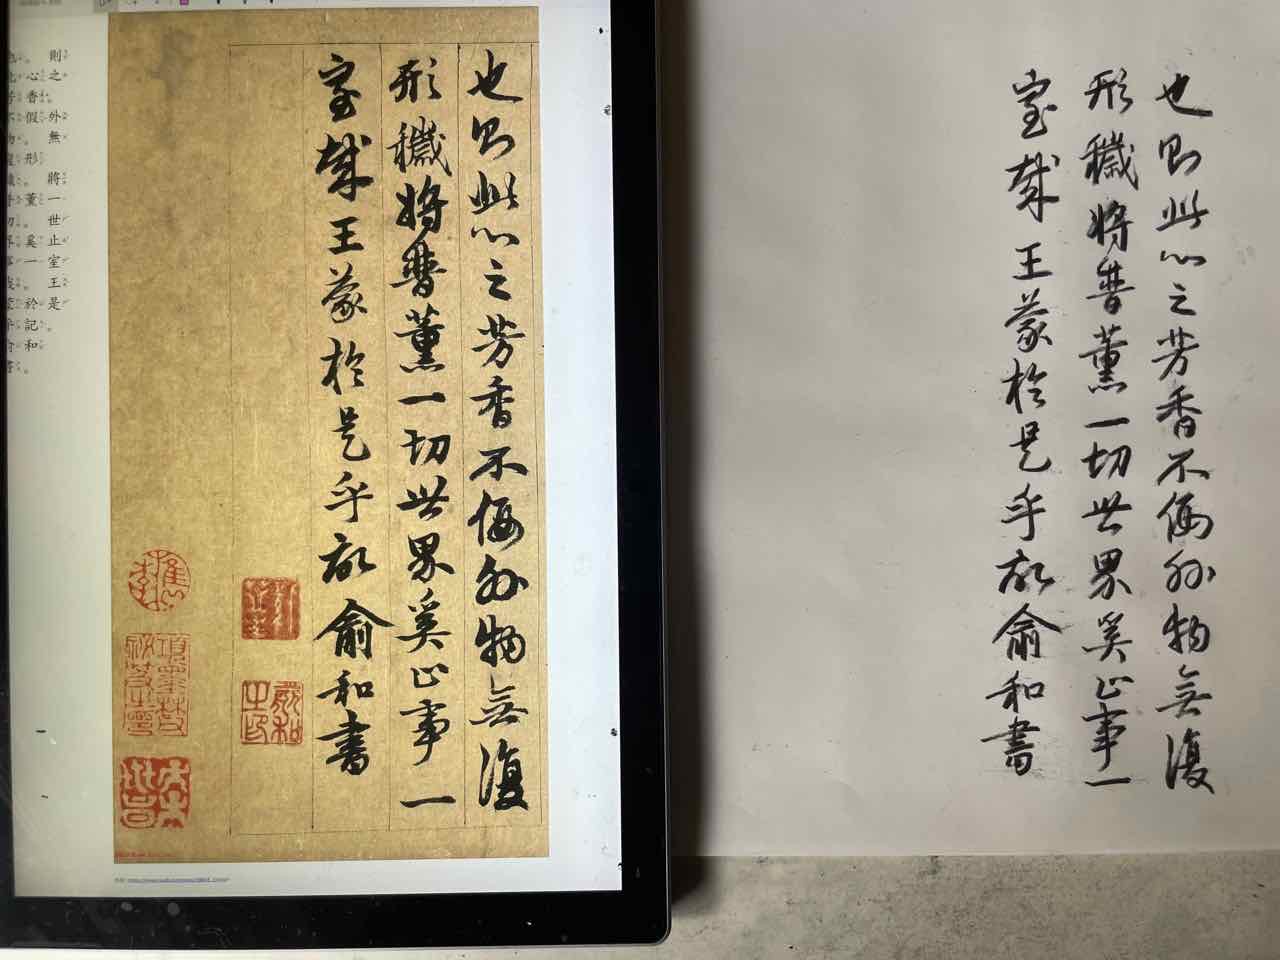 。則
心之
香。
假外
。無
形
。將
薰一
。世
奚止
一室
。王
於是
記。
和
。
也則此心之芳香不假外物無復
形穢將普薰一切世界奚止事一
室哉王蒙於是乎記俞和書
俞和之印
也則此心之芳香不假外物無復
形穢將普薰一切世界奚止事一
室哉王蒙於是乎記俞和書